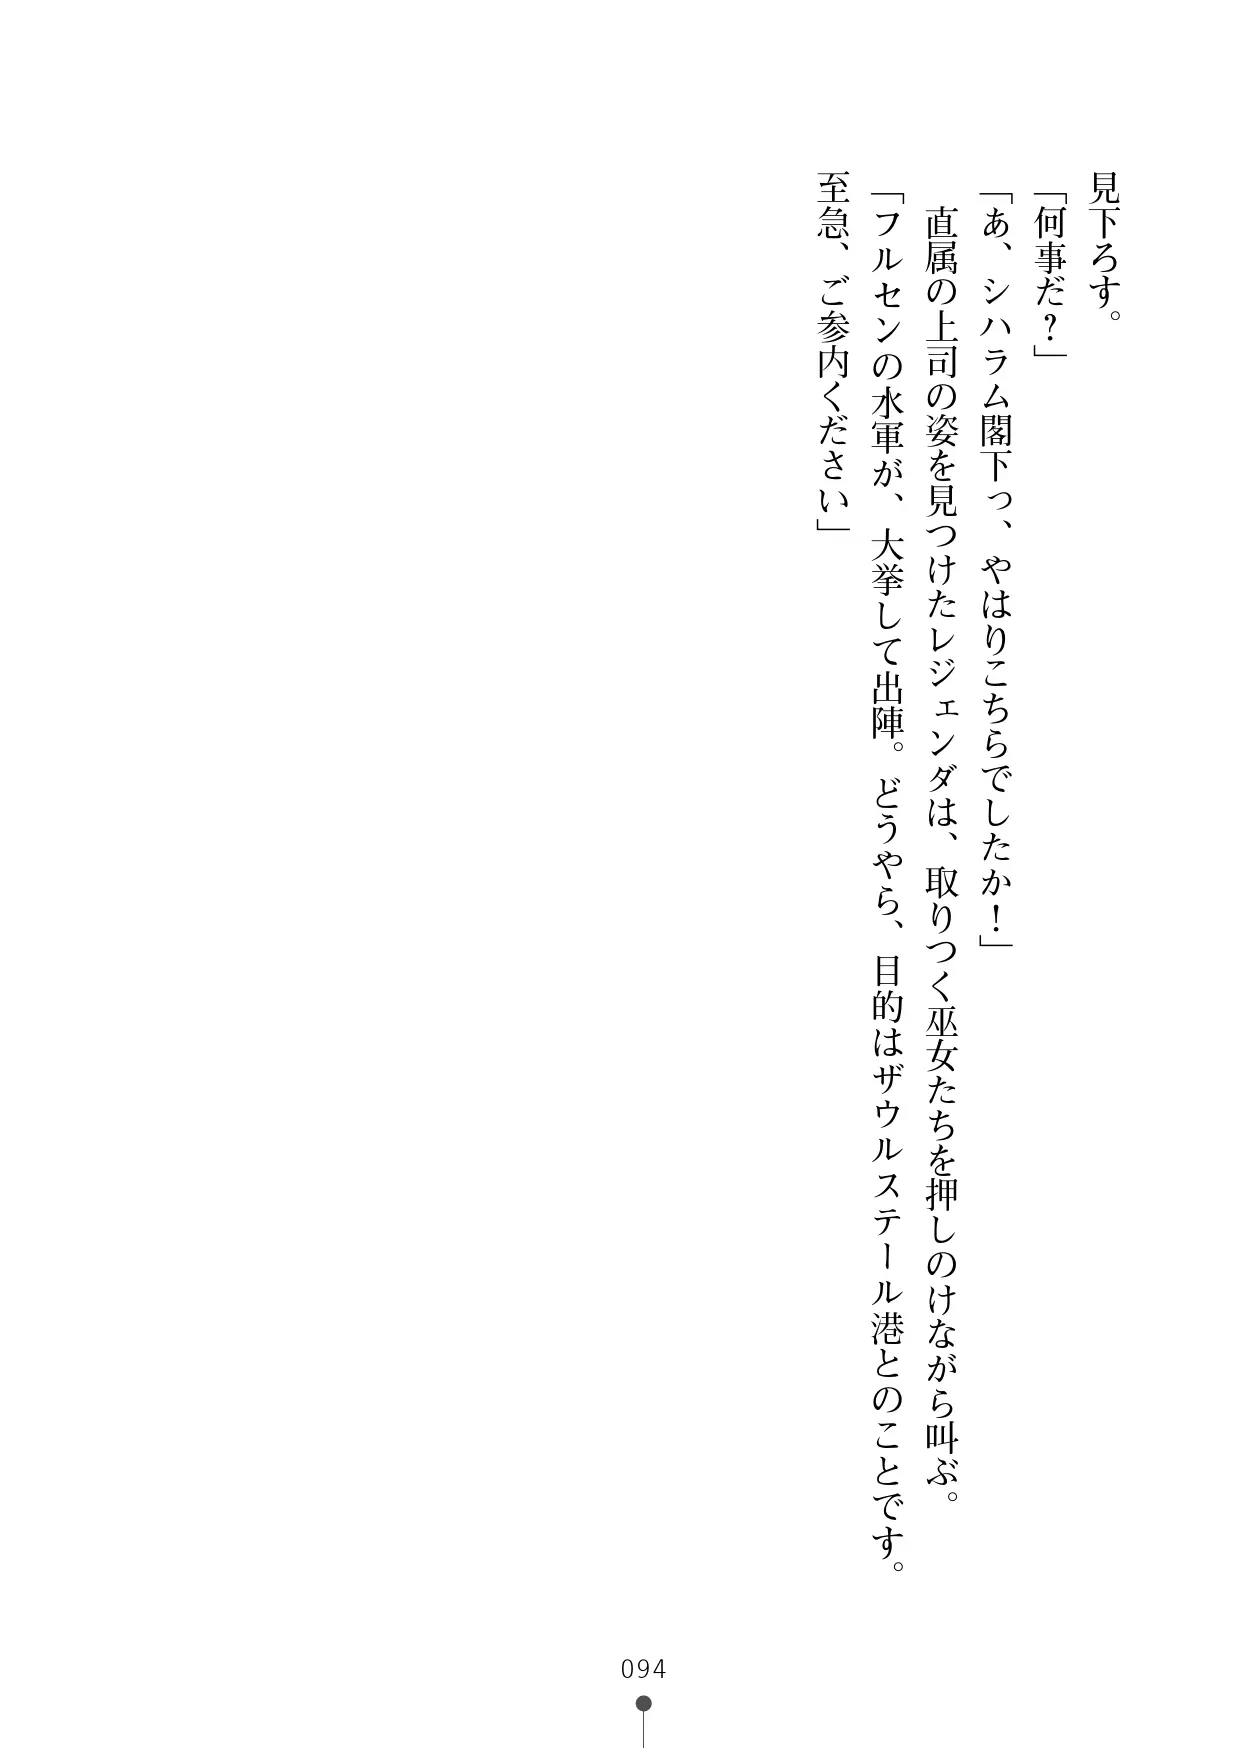 見下ろす。
「何事だ？」
「あ、シハラム閣下っ、やはりこちらでしたか！」
　直属の上司の姿を見つけたレジェンダは、取りつく巫女たちを押しのけながら叫ぶ。
「フルセンの水軍が、大挙して出陣。どうやら、目的はザウルステール港とのことです。
至急、ご参内ください」
094